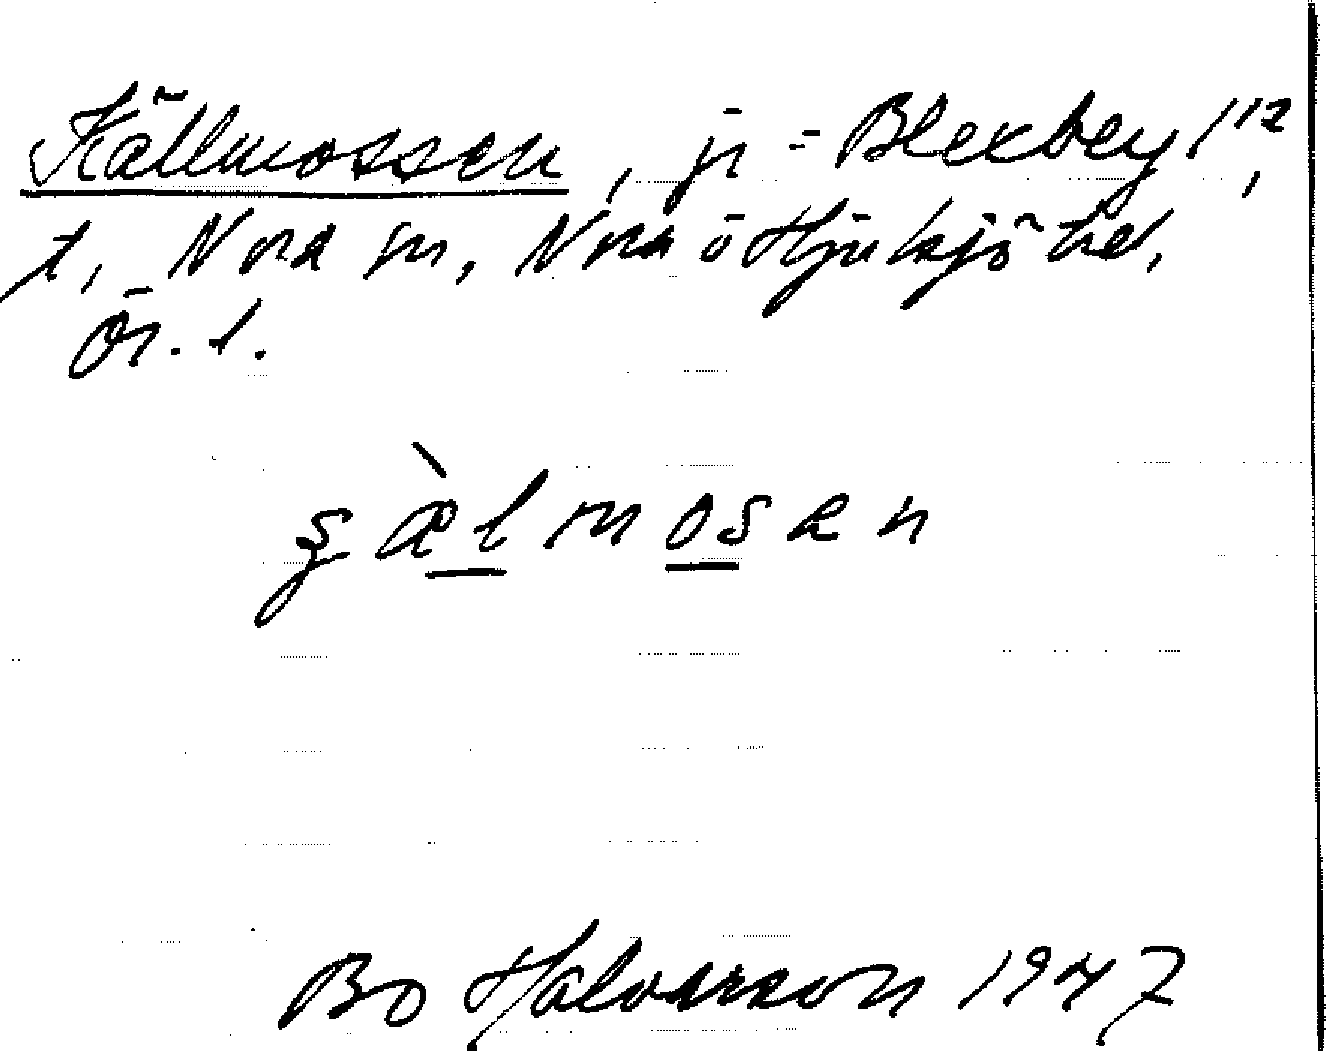 Källmossen, jr = Blexberg 1 1/2,
t, Nora sn, Nora o Hjulsjö hd,
Ör. l.
ʂæ̀lmosen
Bo Halvarson 1947